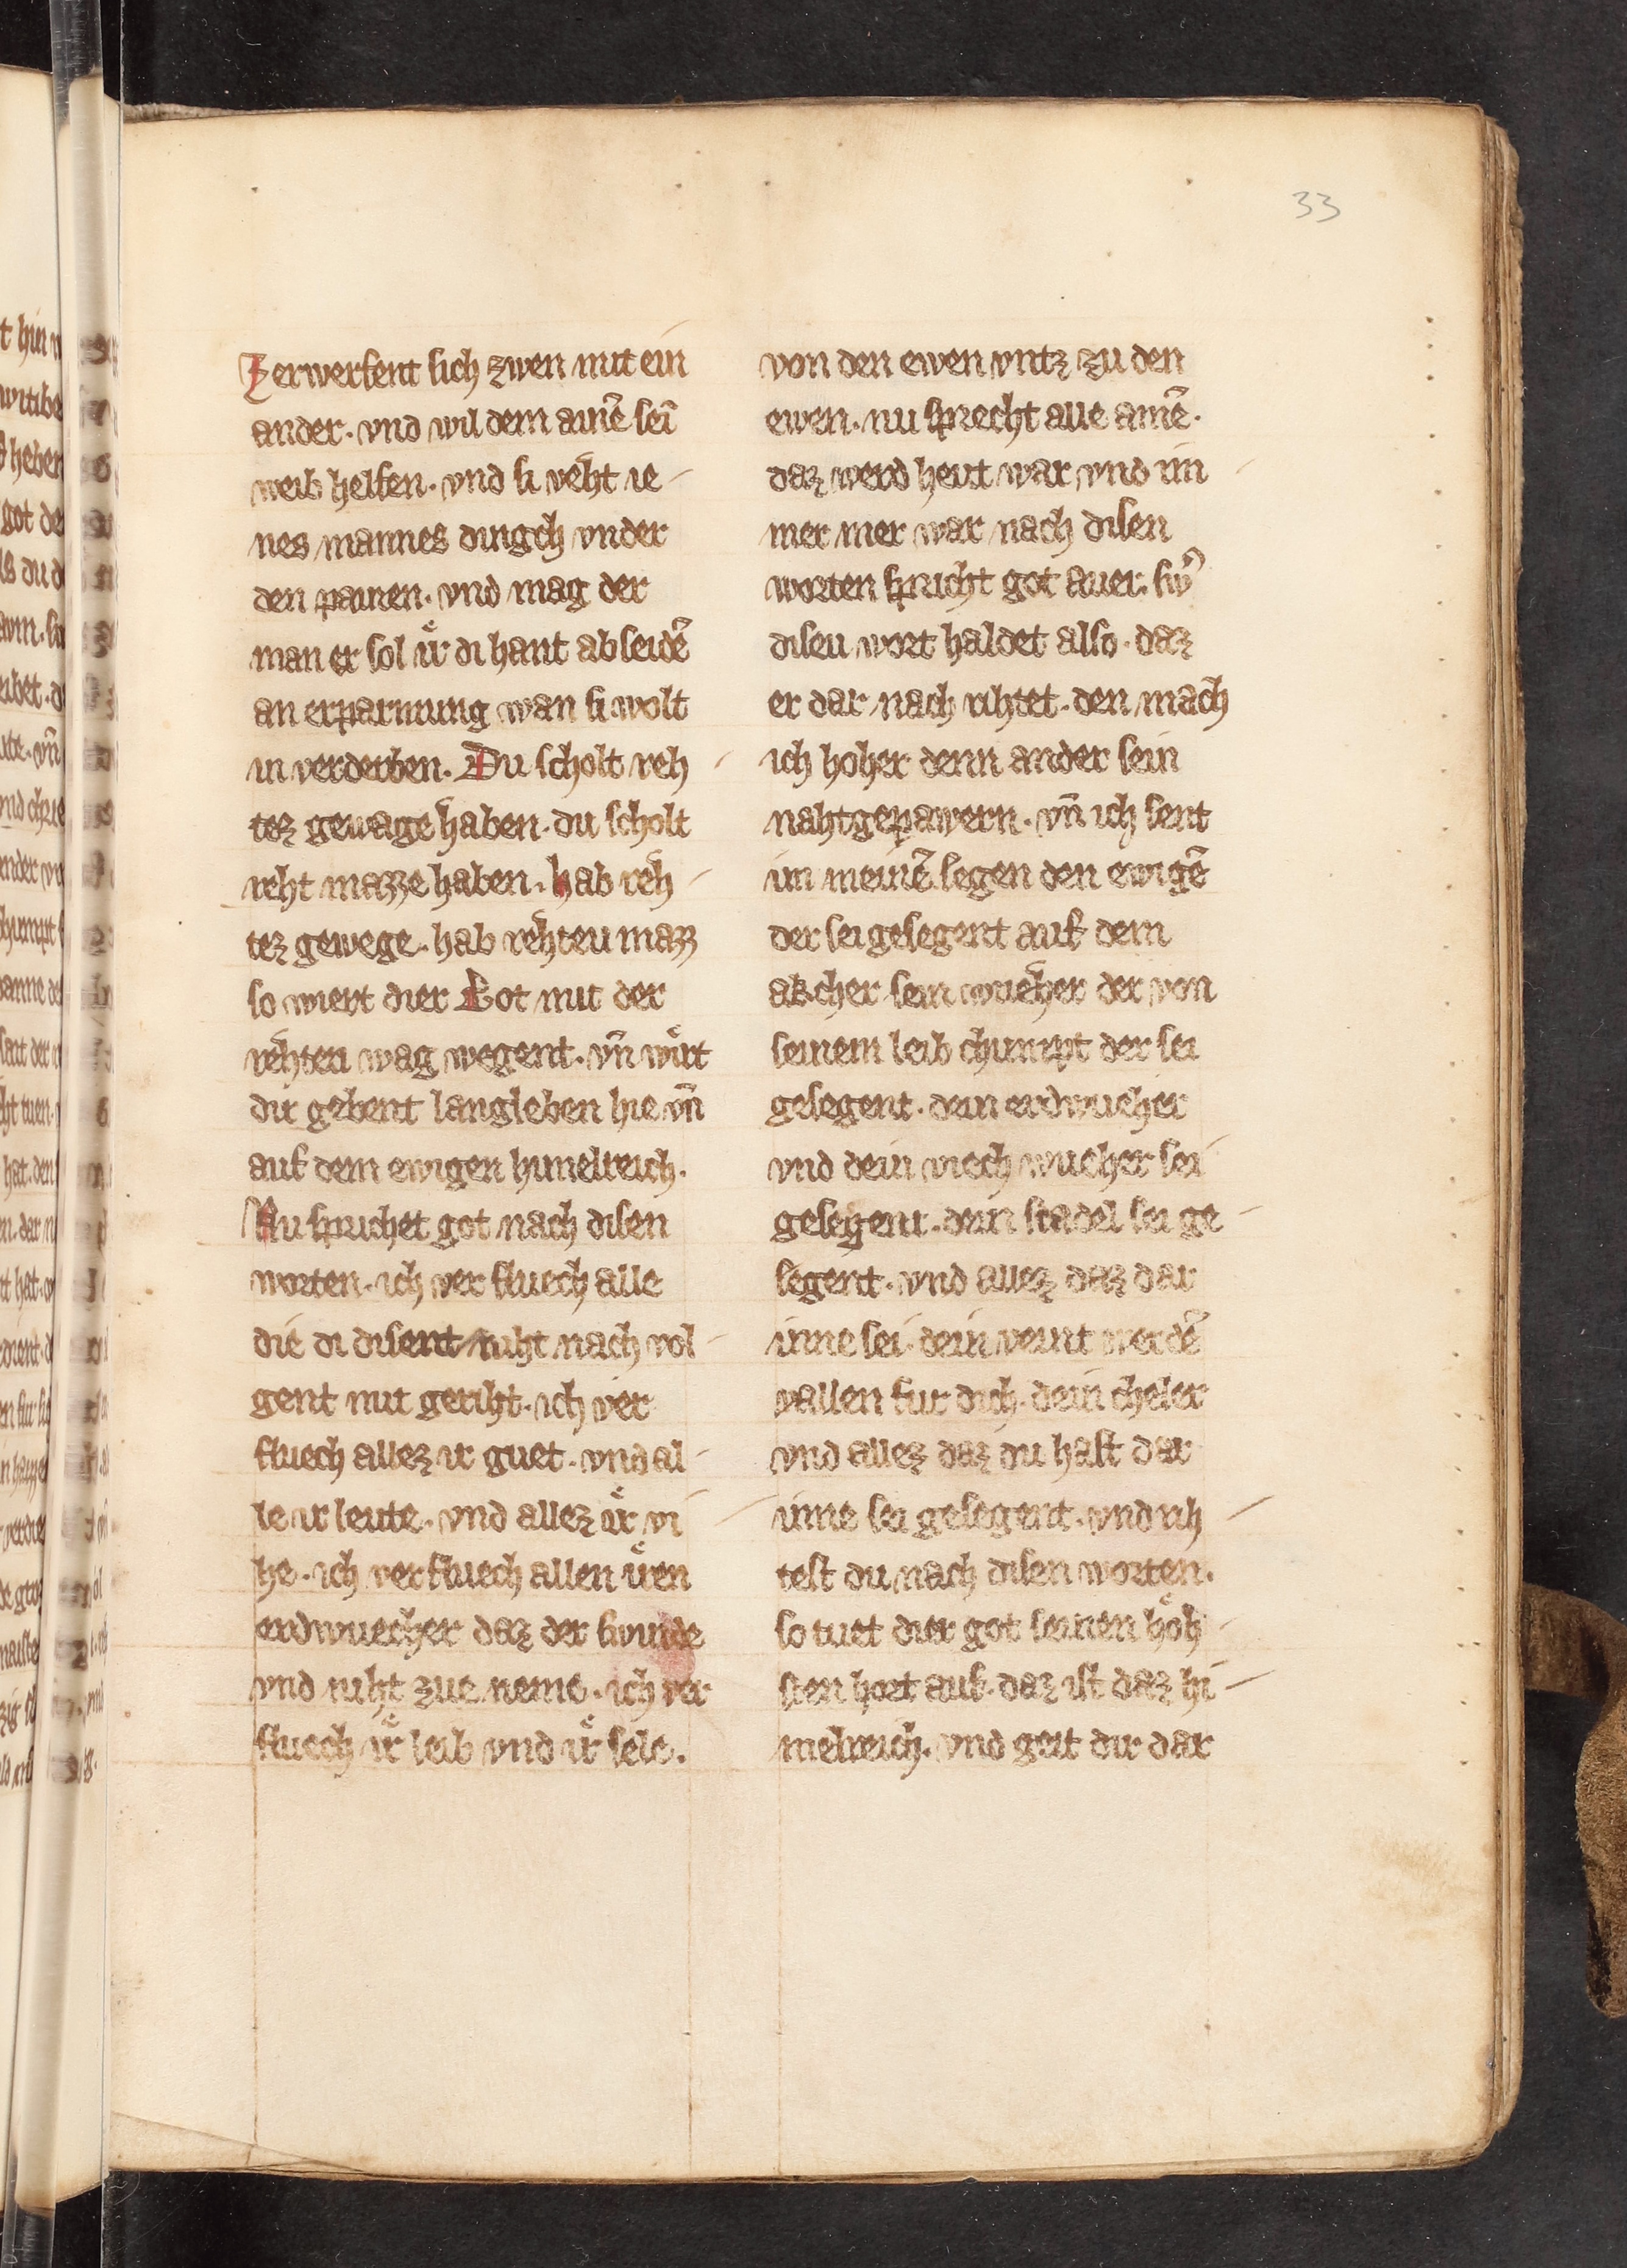 33
Zerwerfent sich zwen mit ein
ander. vnd wil dem ainē sei᷑
weib helfen. vnd si veht ie
nes mannes dingch vnder
den painen. vnd mag der
man er sol iͤr di hant abseidē
an erparmung wan si wolt
in verderben. Du scholt reh
tez gewage haben. du scholt
reht mazze haben. hab reh
tez gewege. hab rehteu mazz
so wiert dier Got mit der
rehten wag wegent. vn̄ wiͤrt
dir gebent langleben hie vn̄
auf dem ewigen himelreich.
Nu sprichet got nach disen
worten. ich verfluech alle
die di disent niht nach vol
gent mit geriht. ich ver
fluech allez ir guet. vnd al
le ir leute. vnd allez iͤr vi
he. ich verfluech allen iͤren
erdwuecher daz der swinde
vnd niht zue neme. ich ver
fluech iͤr leib vnd iͤr sele.
von den ewen vntz zu den
ewen. nu sprecht alle amē.
daz werd heut war vnd im
mer mer war nach disen
worten spricht got auer. sw᷑
diseu wort haldet also. daz
er dar nach rihtet. den mach
ich hoher denn ander sein
nahtgepawern. vn̄ ich sent
im meinē segen den ewigē
der sei gesegent auf dem
akcher sein wueher der von
seinem leib chumpt der sei
gesegent. dein erdwueher
vnd dein viech wueher sei
gesegent. dein stadel sei ge
segent. vnd allez daz dar
inne sei. dein veint werdē
vallen fur dich. dein cheler
vnd allez daz du hast dar
inne sei gesegent. vnd rih
test du nach disen worten.
so tuet dier got seinen hoͤh
sten hort auf. daz ist daz hi
melreich. vnd geit dir dar